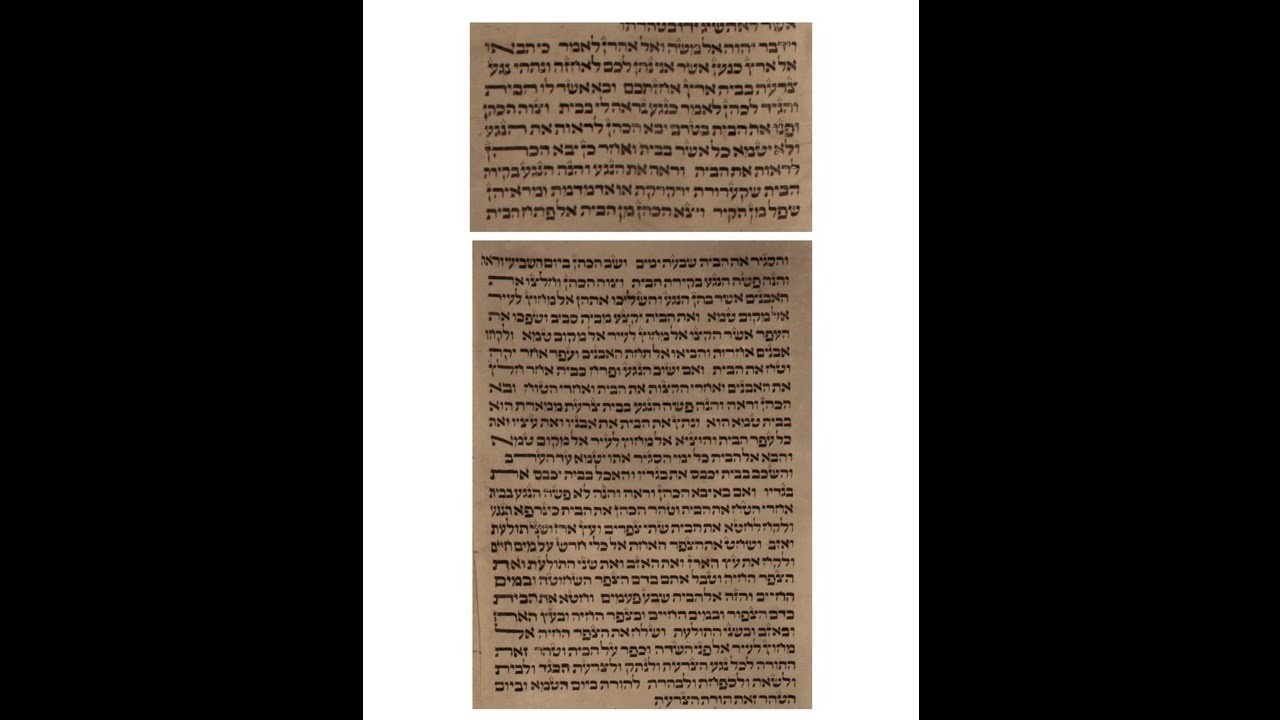 אשר לא תשיג ידו בטהרתו
וידבר יהוה אל משה ואל אהרן לאמר כי תבאו
אל ארץ כנען אשר אני נתן לכם לאחזה ונתתי נגע
צרעת בבית ארץ אחזתכם ובא אשר לו הבית
והגיד לכהן לאמר כנגע נראה לי בבית וצוה הכהן
ופנו את הבית בטרם יבא הכהן לראות את הנגע
ולא יטמא כל אשר בבית ואחר כן יבא הכהן
לראות את הבית וראה את הנגע והנה הנגע בקירת
הבית שקערורת ירקרקת או אדמדמת ומראיהן
שפל מן הקיר ויצא הכהן מן הבית אל פתח הבית
והסגיר את הבית שבעת ימים ושב הכהן ביום השביעי וראה
והנה פשה הנגע בקירת הבית וצוה הכהן וחלצו את
האבנים אשר בהן הנגע והשליכו אתהן אל מחוץ לעיר
אל מקום טמא ואת הבית יקצע מבית סביב ושפכו את
העפר אשר הקצו אל מחוץ לעיר אל מקום טמא ולקחו
אבנים אחרות והביאו אל תחת האבנים ועפר אחר יקח
וטח את הבית ואם ישוב הנגע ופרח בבית אחר חלץ
את האבנים ואחרי הקצות את הבית ואחרי הטוח ובא
הכהן וראה והנה פשה הנגע בבית צרעת ממארת הוא
בבית טמא הוא ונתץ את הבית את אבניו ואת עציו ואת
כל עפר הבית והוציא אל מחוץ לעיר אל מקום טמא
והבא אל הבית כל ימי הסגיר אתו יטמא עד הערב
והשכב בבית יכבס את בגדיו והאכל בבית יכבס את
בגדיו ואם בא יבא הכהן וראה והנה לא פשה הנגע בבית
אחרי הטח את הבית וטהר הכהן את הבית כי נרפא הנגע
ולקח לחטא את הבית שתי צפרים ועץ ארז ושני תולעת
ואזב ושחט את הצפר האחת אל כלי חרש על מים חיים
ולקח את עץ הארז ואת האזב ואת שני התולעת ואת
הצפר החיה וטבל אתם בדם הצפר השחוטה ובמים
החיים והזה אל הבית שבע פעמים וחטא את הבית
בדם הצפור ובמים החיים ובצפר החיה ובעץ הארז
ובאזב ובשני התולעת ושלח את הצפר החיה אל
מחוץ לעיר אל פני השדה וכפר על הבית וטהר זאת
התורה לכל נגע הצרעת ולנתק ולצרעת הבגד ולבית
ולשאת ולספחת ולבהרת להורת ביום הטמא וביום
הטהר זאת תורת הצרעת